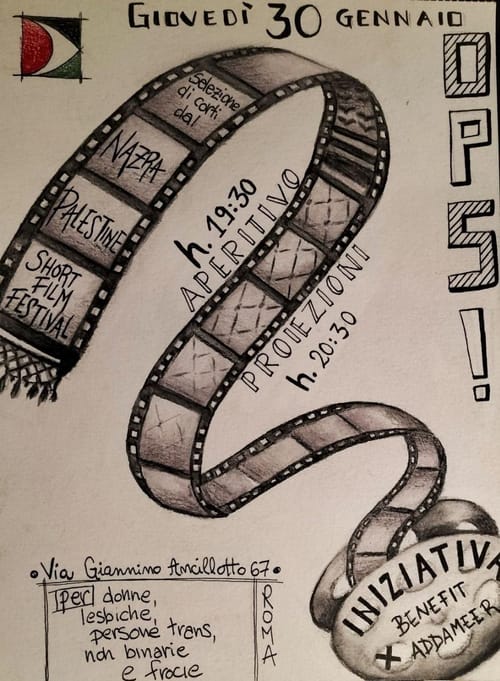 GIOVEDÌ 30 GENNAIO
OPS!
Selezione
di corti
dal
NAZRA
PALESTINE
SHORT
FILM
FESTIVAL
h. 19:30
APERITIVO
PROIEZIONI
h. 20:30
INIZIATIVA
BENEFIT
+ ADDAMEER
• Via Giannino Ancillotto 67 •
ROMA
[per] donne,
lesbiche,
persone trans,
non binarie
e frocie